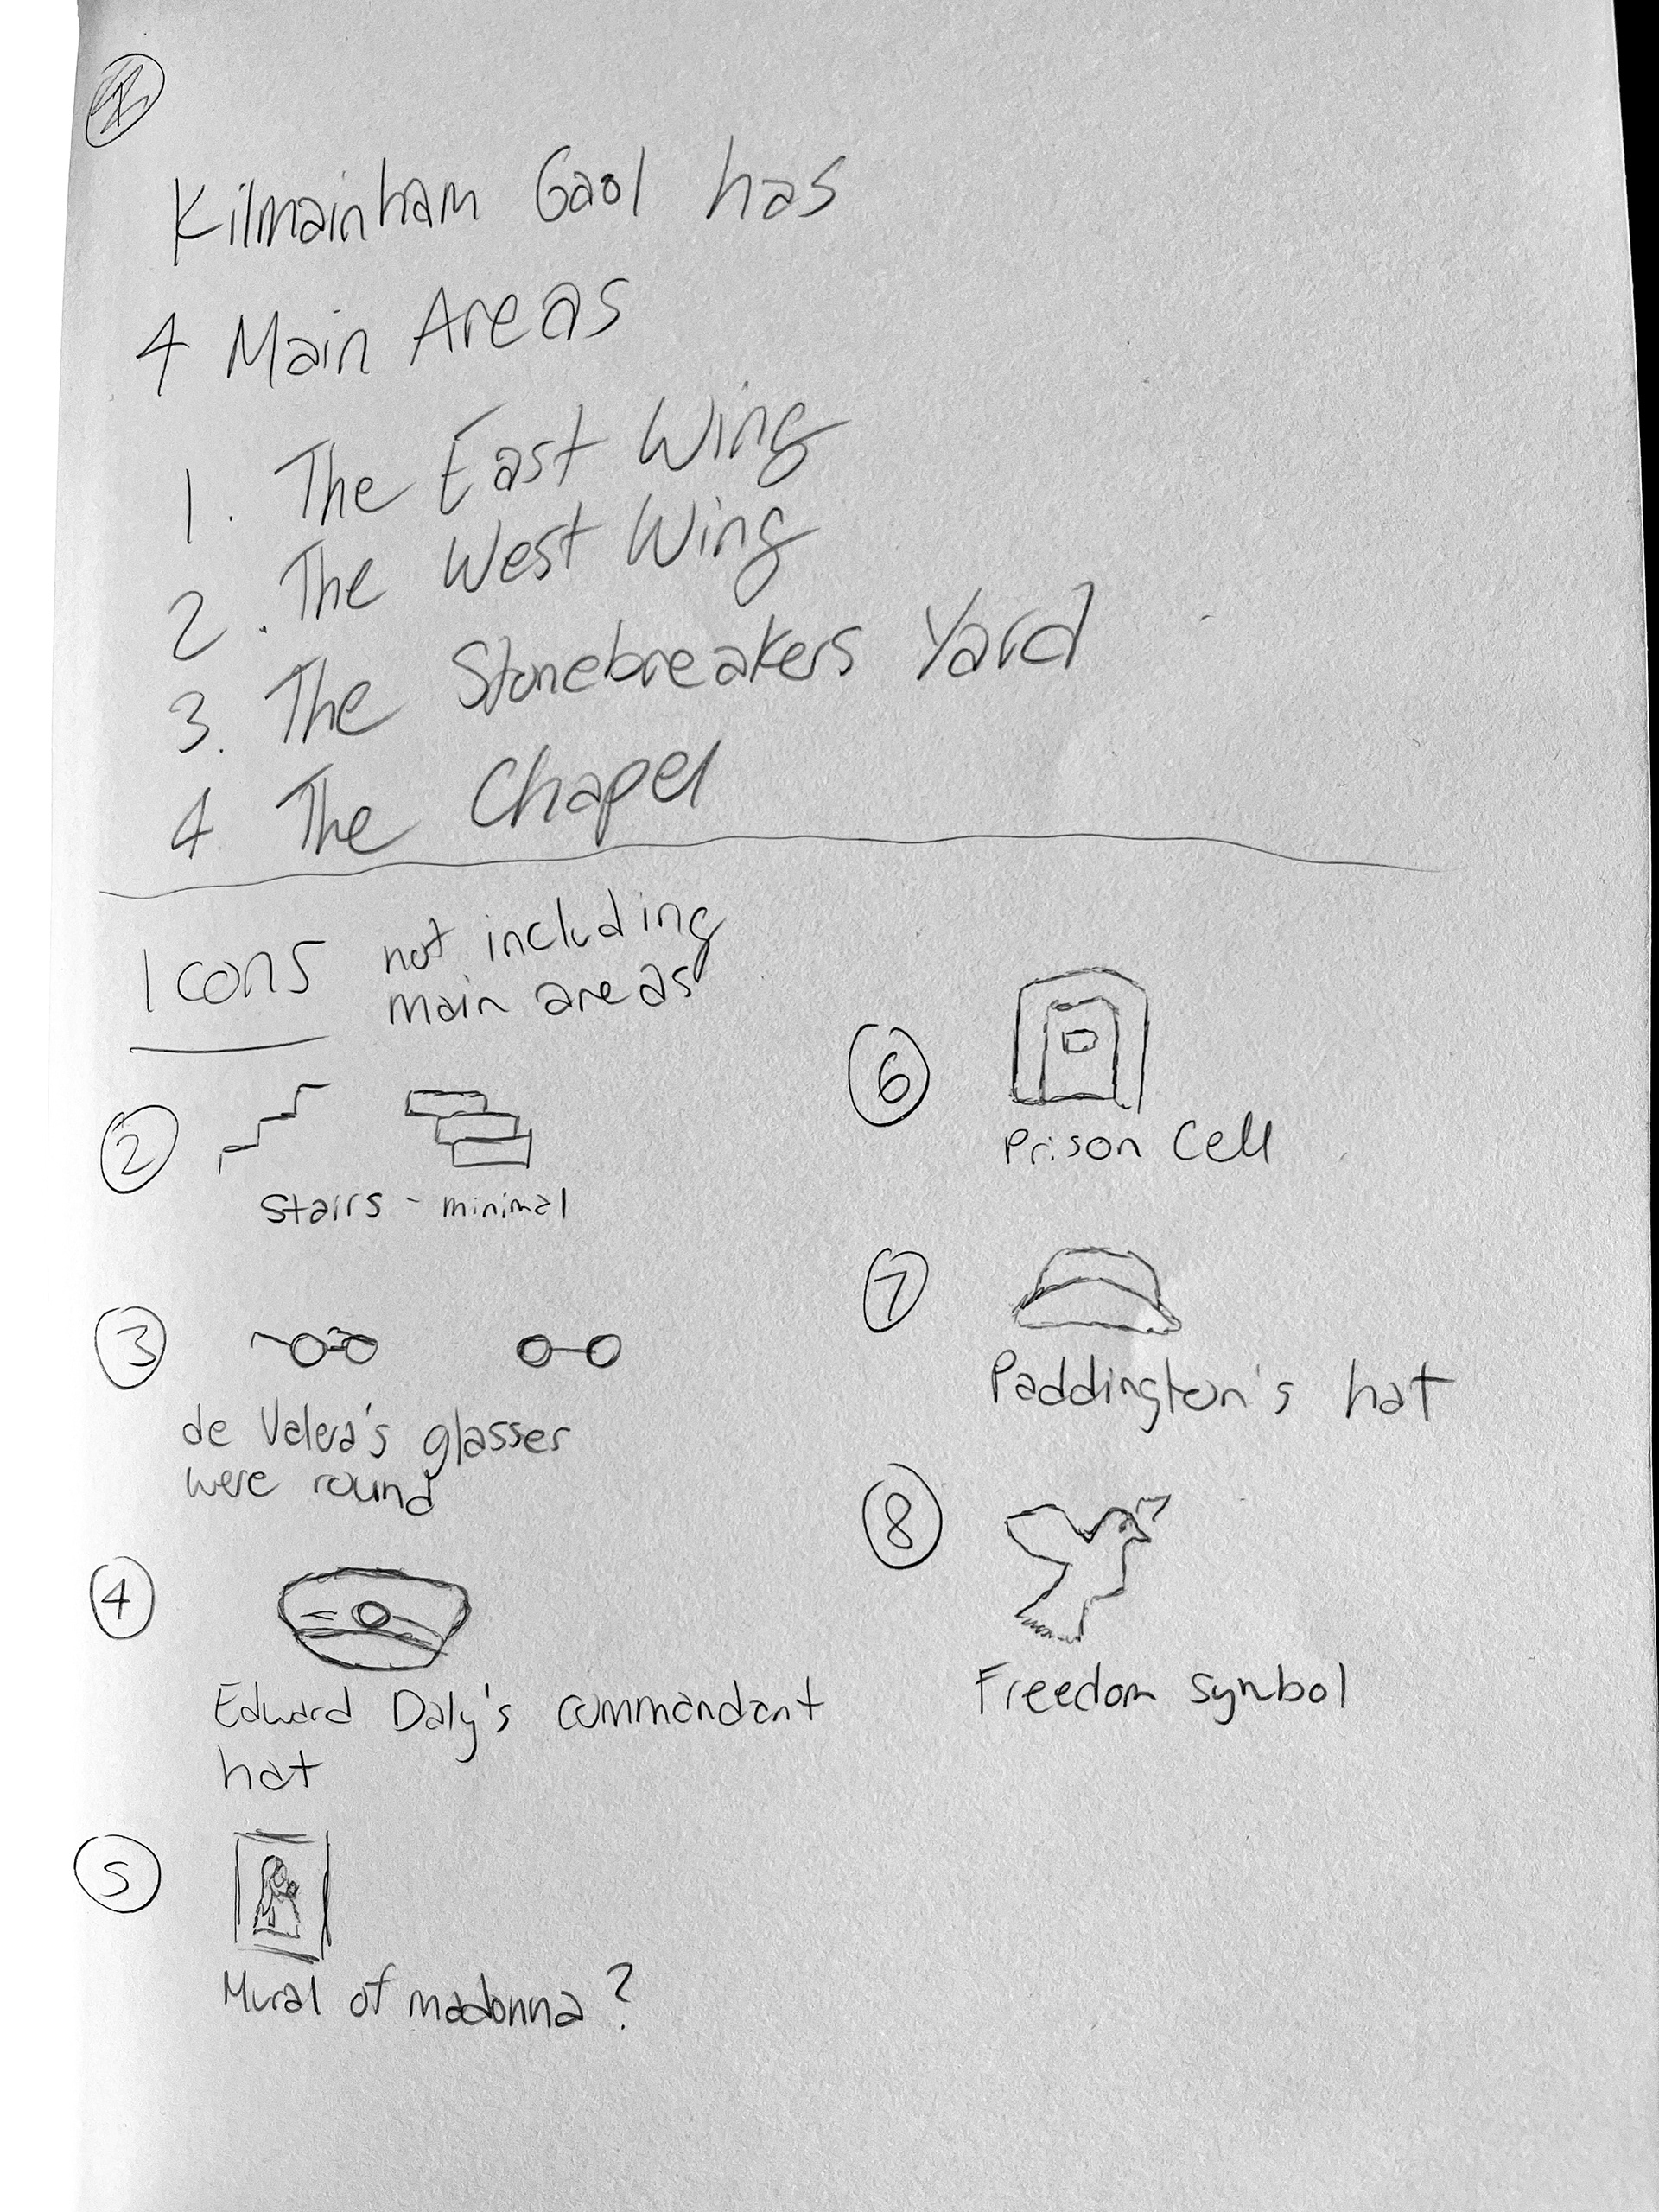 Kilmainham Gaol has
4 Main Areas
1. The East Wing
2. The West Wing
3. The Stonebreakers Yard
4 The Chapel
Icons not including
main areas
2
Stairs - minimal
3
de Valera's glasses
were round
4
Edward Daly's commandant
hat
5
Mural of madonna?
6
Prison Cell
7
Paddington's hat
8
Freedom Symbol